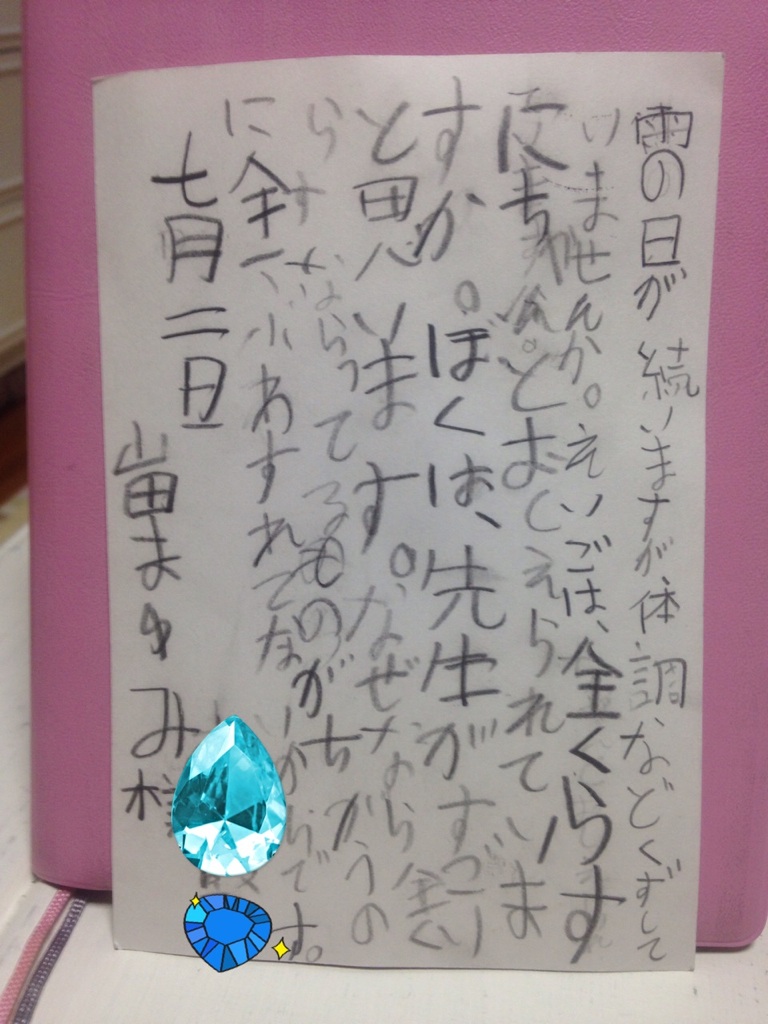 雨の日が続いますが体調などくずして
いませんか。えいごは、全くらす
とおしえられていま
すか。ぼくは、先生がすごい
と思います。なぜなら全く
らすならってるものがちがうの
に全ぶわすれてないからです。
七月二日
山田まゆみ様